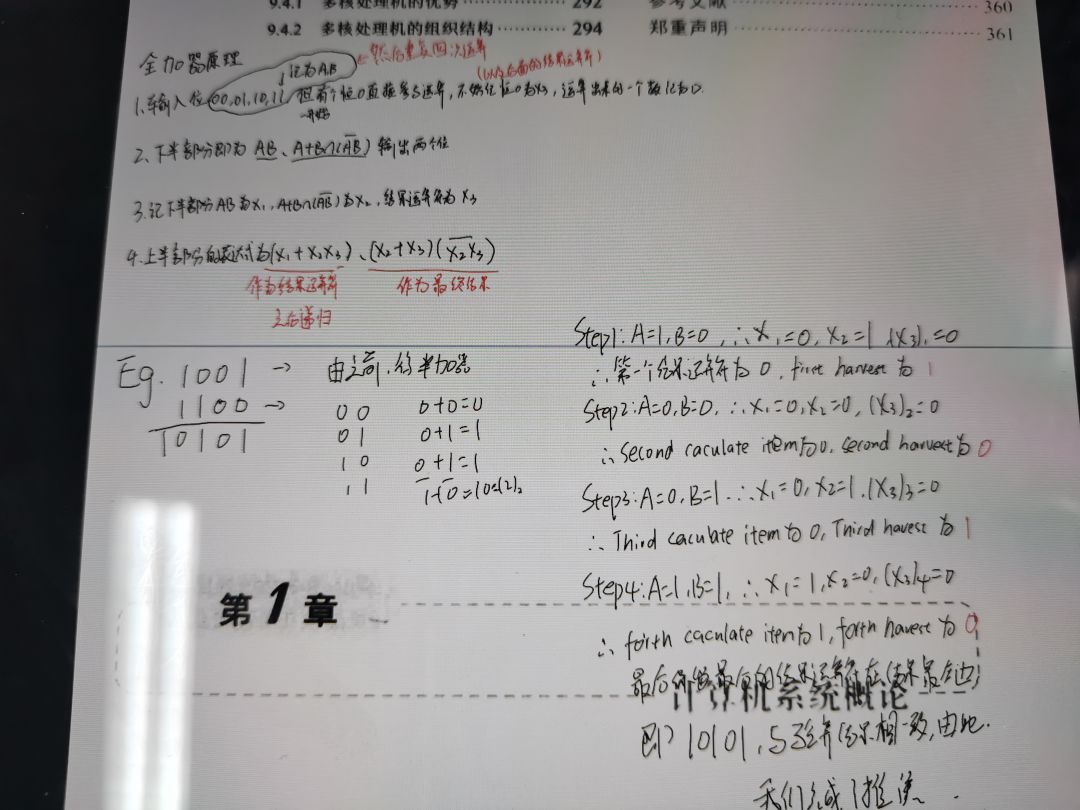 9.4.1 多核处理机的优势 ………… 292
参考文献 ………… 360
9.4.2 多核处理机的组织结构 ………… 294
郑重声明 ………… 361
全加器原理
记为AB
然后重复四次运算
(以及后面的结果运算符)
1.输入位00,01,10,11,但有个恒0直接参与运算,不妨记恒0为X3,运算出来的一个数记为0.
一开始
2、下半部分即为 AB、A+B∩(\overline{AB}) 输出两个位
3.记下半部分AB为X1,A+B∩(\overline{AB})为X2,结果运算符为X3
4.上半部分的表达式为(X1+X2X3)、(X2+X3)(\overline{X2X3})
作为结果运算符 作为最终结果
左右递归
Eg. 1001 →
1100 →
10101
由之前,约半加器
00 0+0=0
01 0+1=1
10 0+1=1
11 1+0=10=(2)₂
Step1:A=1,B=0,∴X1=0,X2=1,(X3)1=0
∴第一个结果运算符为0,first harvest为1
Step2:A=0,B=0,∴X1=0,X2=0,(X3)2=0
∴second caculate item为0,second harvest为0
Step3:A=0,B=1.∴X1=0,X2=1.(X3)3=0
∴Third caculate item为0,Third havest为1
Step4:A=1,B=1,∴X1=1,X2=0,(X3)4=0
∴forth caculate item为1,forth havest为0
第1章
最后的结果运算符在结果最左边
计算机系统概论
即10101,与验算结果相一致,由此.
我们完成了推演.